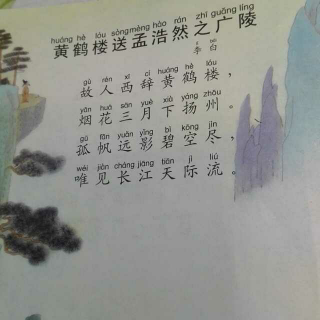 huáng hè lóu sòng mèng hào rán zhī guǎng líng
黄鹤楼送孟浩然之广陵
lǐ bái
李白
gù rén xī cí huáng hè lóu
故人西辞黄鹤楼，
yān huā sān yuè xià yáng zhōu
烟花三月下扬州。
gū fān yuǎn yǐng bì kōng jìn
孤帆远影碧空尽，
wéi jiàn cháng jiāng tiān jì liú
唯见长江天际流。